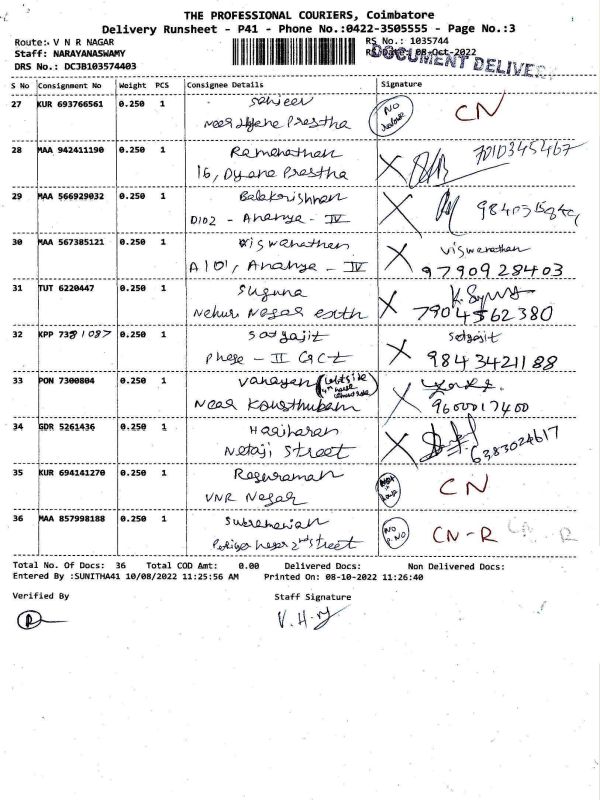 THE PROFESSIONAL COURIERS, Coimbatore
Delivery Runsheet - P41 - Phone No.:0422-3505555 - Page No.:3
Route:. V N R NAGAR RS No.: 1035744
Staff: NARAYANASWAMY RS Date: 08-Oct-2022
DOCUMENT DELIVER
DRS No.: DCJB103574403
S No Consignment No Weight PCS Consignee Details Signature
27 KUR 693766561 0.250 1 Sanjeev NO CN
Prestha
28 MAA 942411190 0.250 1 Ramanathan X 7010345467
16, Dyana Prestha
29 MAA 566929032 0.250 1 Balakrishnan X
D102 - Ananya - IV
30 MAA 567385121 0.250 1 Viswanathan X Viswanathan
A101, Ananya - IV 9790928403
31 TUT 6220447 0.250 1 Suguna X
Nehru Nagar extn 7904562380
32 KPP 7381087 0.250 1 Satyajit X Satyajit
Phase - II GCT 9843421188
33 PON 7300804 0.250 1 X
Near Kousthubam 9600017400
34 GDR 5261436 0.250 1 Hariharan X 6383024617
Netaji Street
35 KUR 694141270 0.250 1 Raguraman CN
VNR Nagar
36 MAA 857998188 0.250 1 Subramanian NO P.NO CN-R
2nd street
Total No. Of Docs: 36 Total COD Amt: 0.00 Delivered Docs: Non Delivered Docs:
Entered By :SUNITHA41 10/08/2022 11:25:56 AM Printed On: 08-10-2022 11:26:40
Verified By Staff Signature
R